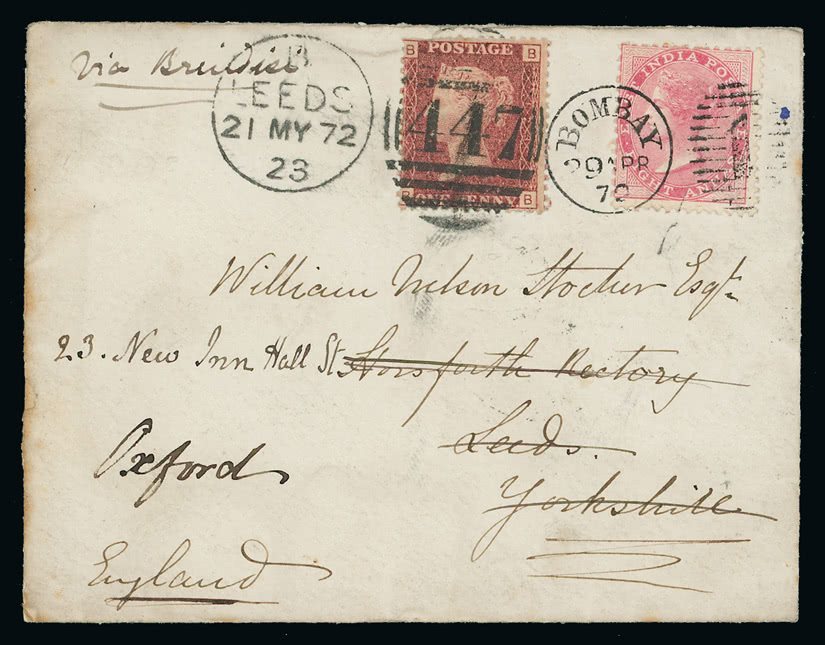 Via Brindisi
LEEDS
21 MY 72
23
B B
POSTAGE
447
B B
ONE PENNY
INDIA PO
EIGHT ANN
BOMBAY
29 APR
72
William Nelson Stocker Esqr.
23. New Inn Hall St. Horsforth Rectory
Leeds.
Oxford
Yorkshire
England